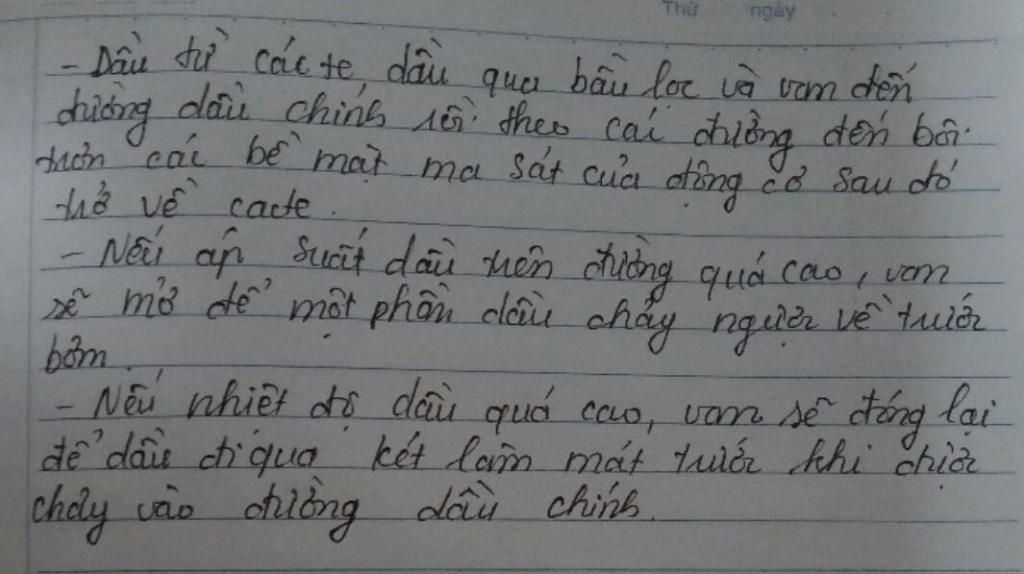 Thứ ngày
- Dầu từ các te dầu qua bầu lọc và van đến
đường dầu chính rồi theo các đường đến bôi
trơn các bề mặt ma sát của động cơ sau đó
trở về cacte.
- Nếu áp suất dầu trên đường quá cao, van
sẽ mở để một phần dầu chảy ngược về trước
bơm.
- Nếu nhiệt độ dầu quá cao, van sẽ đóng lại
để dầu đi qua két làm mát trước khi được
chảy vào đường dầu chính.